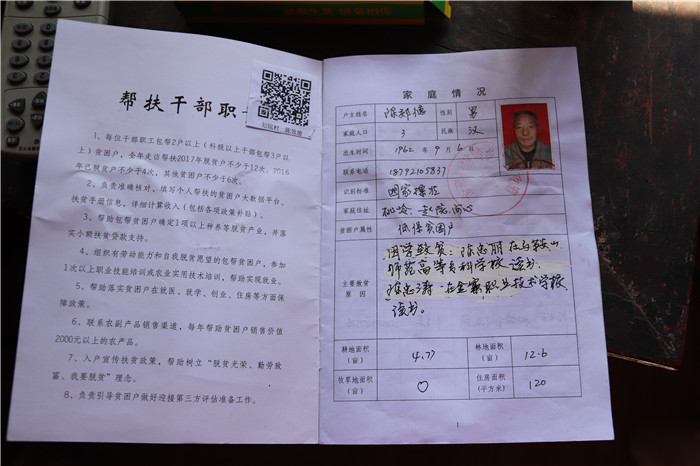 帮扶干部职
1、每位干部职工包帮2户以上（科级以上干部包帮3户以
上）贫困户，全年走访帮扶2017年脱贫户不少于12次，2016
年已脱贫户不少于4次，其他贫困户不少于6次。
2、负责准确核对、填写个人帮扶的贫困户大数据平台、
扶贫手册信息，详细计算收入（包括各项政策补贴）。
3、帮助包帮贫困户确定1项以上种养等脱贫产业，并落
实小额扶贫贷款支持。
4、组织有劳动能力和自我脱贫意愿的包帮贫困户，参加
1次以上职业技能培训或农业实用技术培训，帮助实现就业。
5、帮助落实贫困户在就医、就学、创业、住房等方面保
障政策。
6、联系农副产品销售渠道，每年帮助贫困户销售价值
2000元以上的农产品。
7、入户宣传扶贫政策，帮助树立“脱贫光荣、勤劳致
富、我要脱贫”理念。
8、负责引导贫困户做好迎接第三方评估准备工作。
家庭情况
户主姓名 陈邦德 性别 男
家庭人口 3 民族 汉
出生时间 1962年9月6日
联系电话 18792105837
识别标准 国家标准
家庭住址
贫困户属性 低保贫困户
主要致贫
原因
因学致贫：陈忠丽在马鞍山
师范高等专科学校读书
陈忠涛在金寨职业技术学校
读书。
耕地面积
（亩）
4.77
林地面积
（亩）
12.6
牧草地面积
（亩）
0
住房面积
（平方米）
120
1